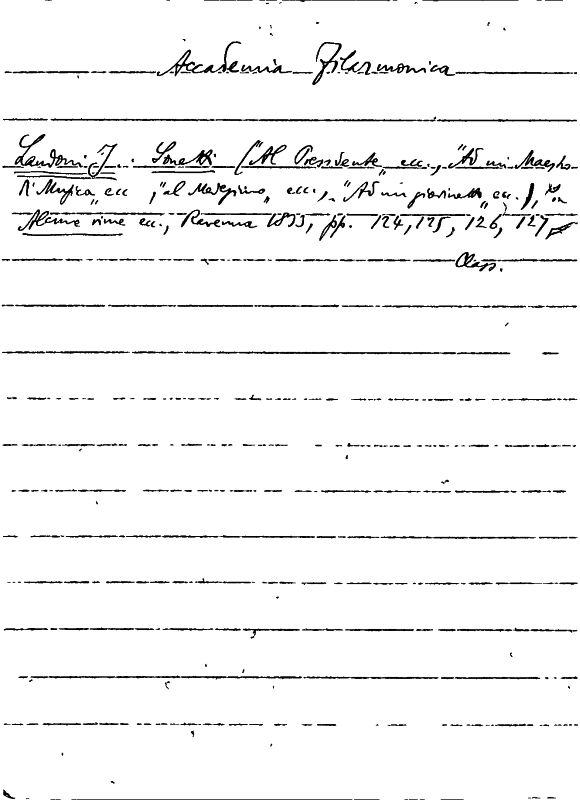 Accademia Filarmonica
Landoni J. . Sonetti ("Al Presidente" ecc., "Ad un Maestro
di Musica" ecc, "al Maregino" ecc., "Ad un giovinetto" ecc.), in
Alcune rime ecc., Ravenna 1833, pp. 124, 125, 126, 127
Class.